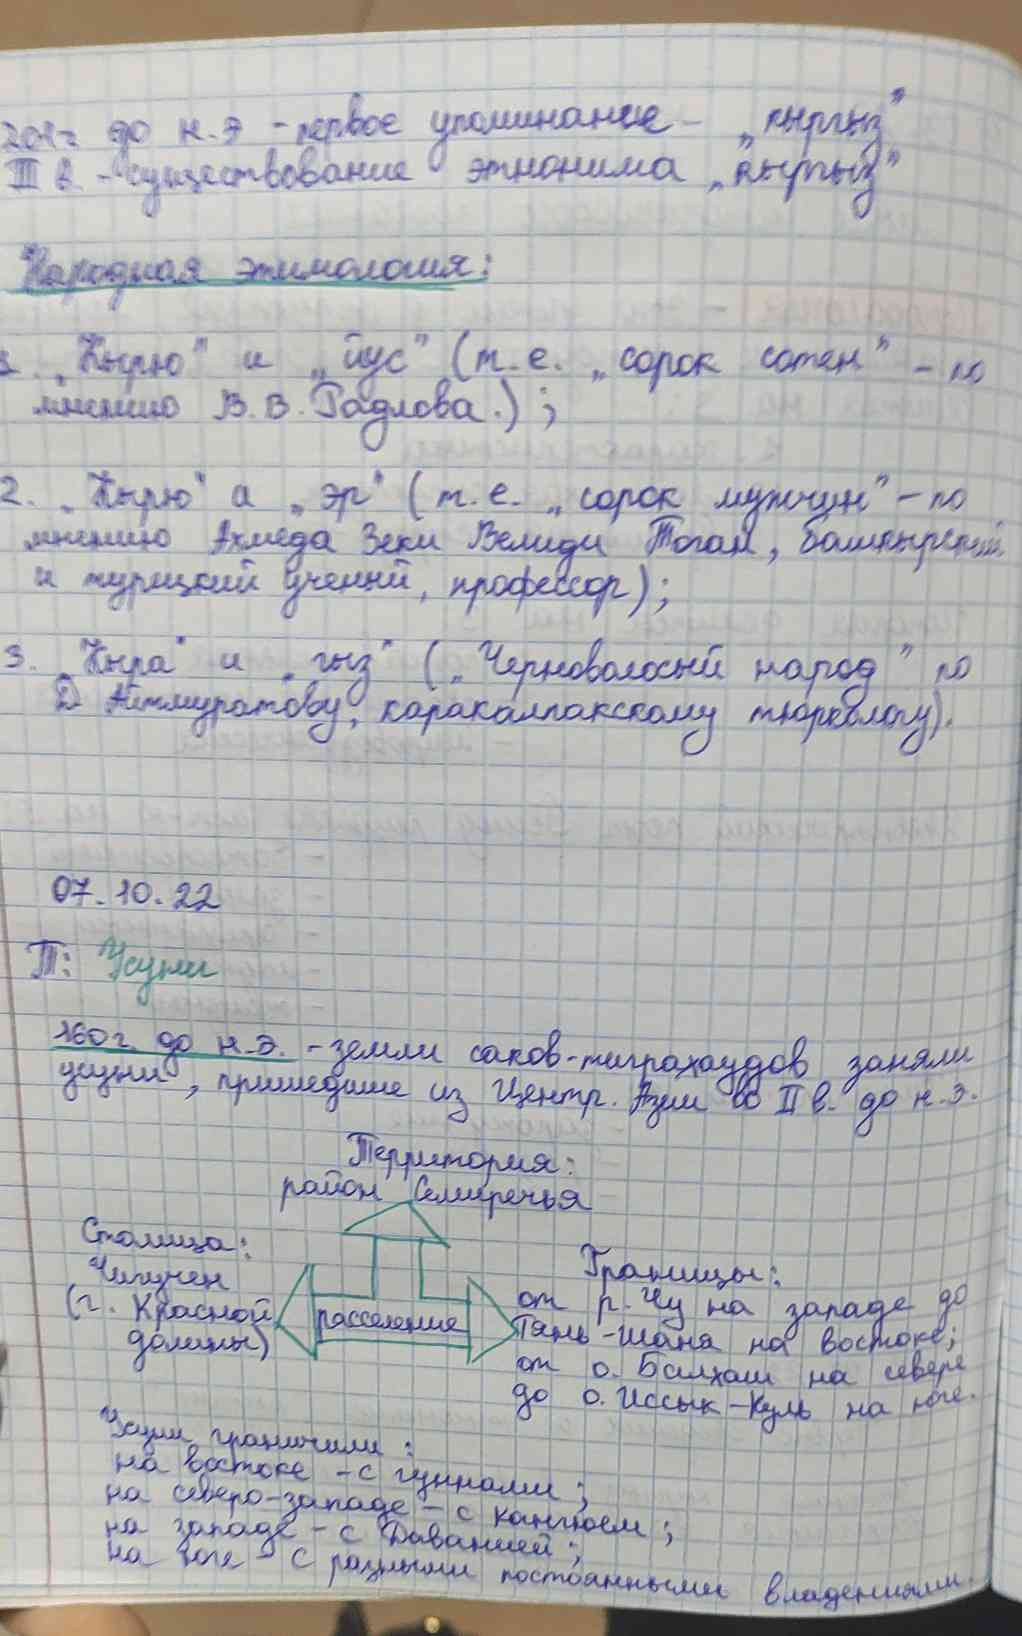 201г до н.э - первое упоминание - „кыргыз”
III в. - существование этнонима „кыргыз”
Народная этимология:
1. „Кырю” и „йус” (т.е. „сорок сотен” - по
мнению В.В. Радлова.);
2. „Кырю” и „эр” (т.е. „сорок мужчин” - по
мнению Ахмеда Зеки Велиди Тоган, башкырский
и турецкий ученый, профессор);
3. „Кыра” и „гыз” („Черноволосый народ” по
Д Айтмуратову, каракалпакскому тюркологу).
07.10.22
Т: Усуни
160г. до н.э. - земли саков-тиграхаудов заняли
усуни, пришедшие из Центр. Азии во II в. до н.э.
Территория:
район Семиречья
Столица:
Чигучен
(г. Красной
долины)
расселение
Границы:
от р. Чу на западе до
Тянь-Шаня на востоке;
от о. Балхаш на севере
до о. Иссык-Куль на юге.
Усуни граничили:
на востоке - с гуннами;
на северо-западе - с Кангюем;
на западе - с Даванией;
на юге - с разными постоянными владениями.